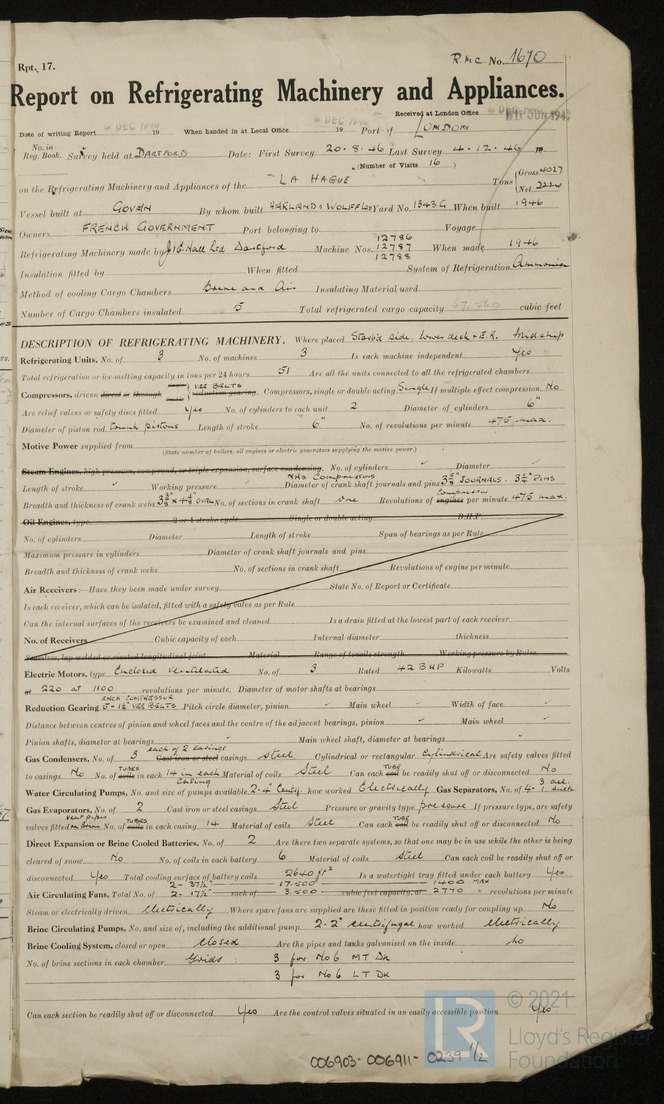 Rpt. 17.
R.M.C. No. 1670
Report on Refrigerating Machinery and Appliances.
Received at London Office
Date of writing Report 6 DEC 1946 19 When handed in at Local Office 19 Port of LONDON
No. in Reg. Book. Survey held at DARTFORD Date: First Survey 20.8.46 Last Survey 4.12.46 19
(Number of Visits 16)
on the Refrigerating Machinery and Appliances of the LA HAGUE Tons Gross 4027 Net 2224
Vessel built at GOVAN By whom built HARLAND & WOLFF LTD Yard No. 1343G When built 1946
Owners FRENCH GOVERNMENT Port belonging to Voyage
Refrigerating Machinery made by J & E Hall Ltd Dartford Machine Nos. 12786 12787 12788 When made 1946
Insulation fitted by When fitted System of Refrigeration Ammonia
Method of cooling Cargo Chambers Brine and Air Insulating Material used
Number of Cargo Chambers insulated 5 Total refrigerated cargo capacity cubic feet
DESCRIPTION OF REFRIGERATING MACHINERY. Where placed Starb'd side lower deck & E.R. Midship
Refrigerating Units, No. of 3 No. of machines 3 Is each machine independent Yes
Total refrigeration or ice-melting capacity in tons per 24 hours 51 Are all the units connected to all the refrigerated chambers
Compressors, driven direct or through VEE BELTS reduction gearing. Compressors, single or double acting Single If multiple effect compression No
Are relief valves or safety discs fitted Yes No. of cylinders to each unit 2 Diameter of cylinders 6"
Diameter of piston rod trunk pistons Length of stroke 6" No. of revolutions per minute 475 max.
Motive Power supplied from
(State number of boilers, oil engines or electric generators supplying the motive power.)
Steam Engines, high pressure, compound, or triple expansion, surface condensing. No. of cylinders Diameter
Length of stroke Working pressure NH3 Compressors Diameter of crank shaft journals and pins JOURNALS PINS
Breadth and thickness of crank webs No. of sections in crank shaft one Revolutions of engines Compressor per minute 475 max.
Oil Engines, type 2 or 4 stroke cycle Single or double acting B.H.P.
No. of cylinders Diameter Length of stroke Span of bearings as per Rule
Maximum pressure in cylinders Diameter of crank shaft journals and pins
Breadth and thickness of crank webs No. of sections in crank shaft Revolutions of engine per minute
Air Receivers:—Have they been made under survey State No. of Report or Certificate
Is each receiver, which can be isolated, fitted with a safety valve as per Rule
Can the internal surfaces of the receivers be examined and cleaned Is a drain fitted at the lowest part of each receiver
No. of Receivers Cubic capacity of each Internal diameter thickness
Seamless, lap welded or riveted longitudinal joint Material Range of tensile strength Working pressure by Rules
Electric Motors, type Enclosed Ventilated No. of 3 Rated 42 BHP Kilowatts Volts
at 220 at 1100 revolutions per minute. Diameter of motor shafts at bearings
Reduction Gearing EACH COMPRESSOR VEE BELTS Pitch circle diameter, pinion Main wheel Width of face
Distance between centres of pinion and wheel faces and the centre of the adjacent bearings, pinion Main wheel
Pinion shafts, diameter at bearings Main wheel shaft, diameter at bearings
Gas Condensers, No. of 3 each of 2 casings Cast iron or steel casings Steel Cylindrical or rectangular Cylindrical Are safety valves fitted
to casings No No. of coils TUBES in each 14 in each casing Material of coils Steel Can each coil TUBE be readily shut off or disconnected No
Water Circulating Pumps, No. and size of pumps available 2-4" Centfy. how worked Electrically Gas Separators, No. of
Gas Evaporators, No. of 2 Cast iron or steel casings Steel Pressure or gravity type pressure If pressure type, are safety
valves fitted vent pipes on brine No. of coils TUBES in each casing 14 Material of coils Steel Can each coil TUBE be readily shut off or disconnected No
Direct Expansion or Brine Cooled Batteries, No. of 2 Are there two separate systems, so that one may be in use while the other is being
cleared of snow No No. of coils in each battery 6 Material of coils Steel Can each coil be readily shut off or
disconnected Yes Total cooling surface of battery coils 2640 ft² Is a watertight tray fitted under each battery Yes
Air Circulating Fans, Total No. of 2 - 37½" 2 - 17½" each of 17.500 3.500 cubic feet capacity, at 1400 MAX 2770 revolutions per minute
Steam or electrically driven Electrically Where spare fans are supplied are these fitted in position ready for coupling up No
Brine Circulating Pumps, No. and size of, including the additional pump 2-2" centrifugal how worked electrically
Brine Cooling System, closed or open Closed Are the pipes and tanks galvanised on the inside No
No. of brine sections in each chamber Grids: 3 for No 6 MT DK
3 for No 6 LT DK
Can each section be readily shut off or disconnected Yes Are the control valves situated in an easily accessible position Yes
006903-006911-0239 1/2
© 2021
Lloyd's Register
Foundation